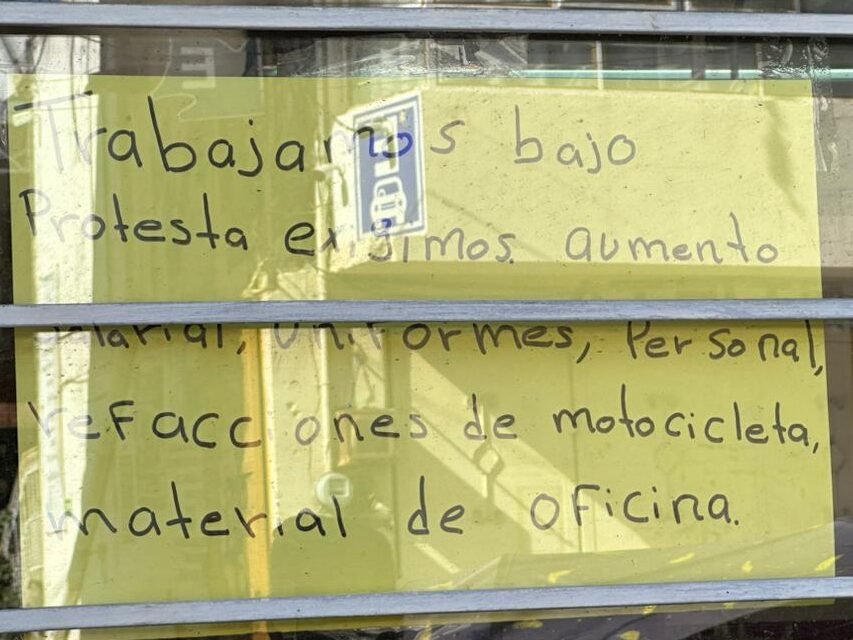 Trabajamos bajo
Protesta exigimos aumento
salarial, uniformes, Personal,
refacciones de motocicleta,
material de oficina.